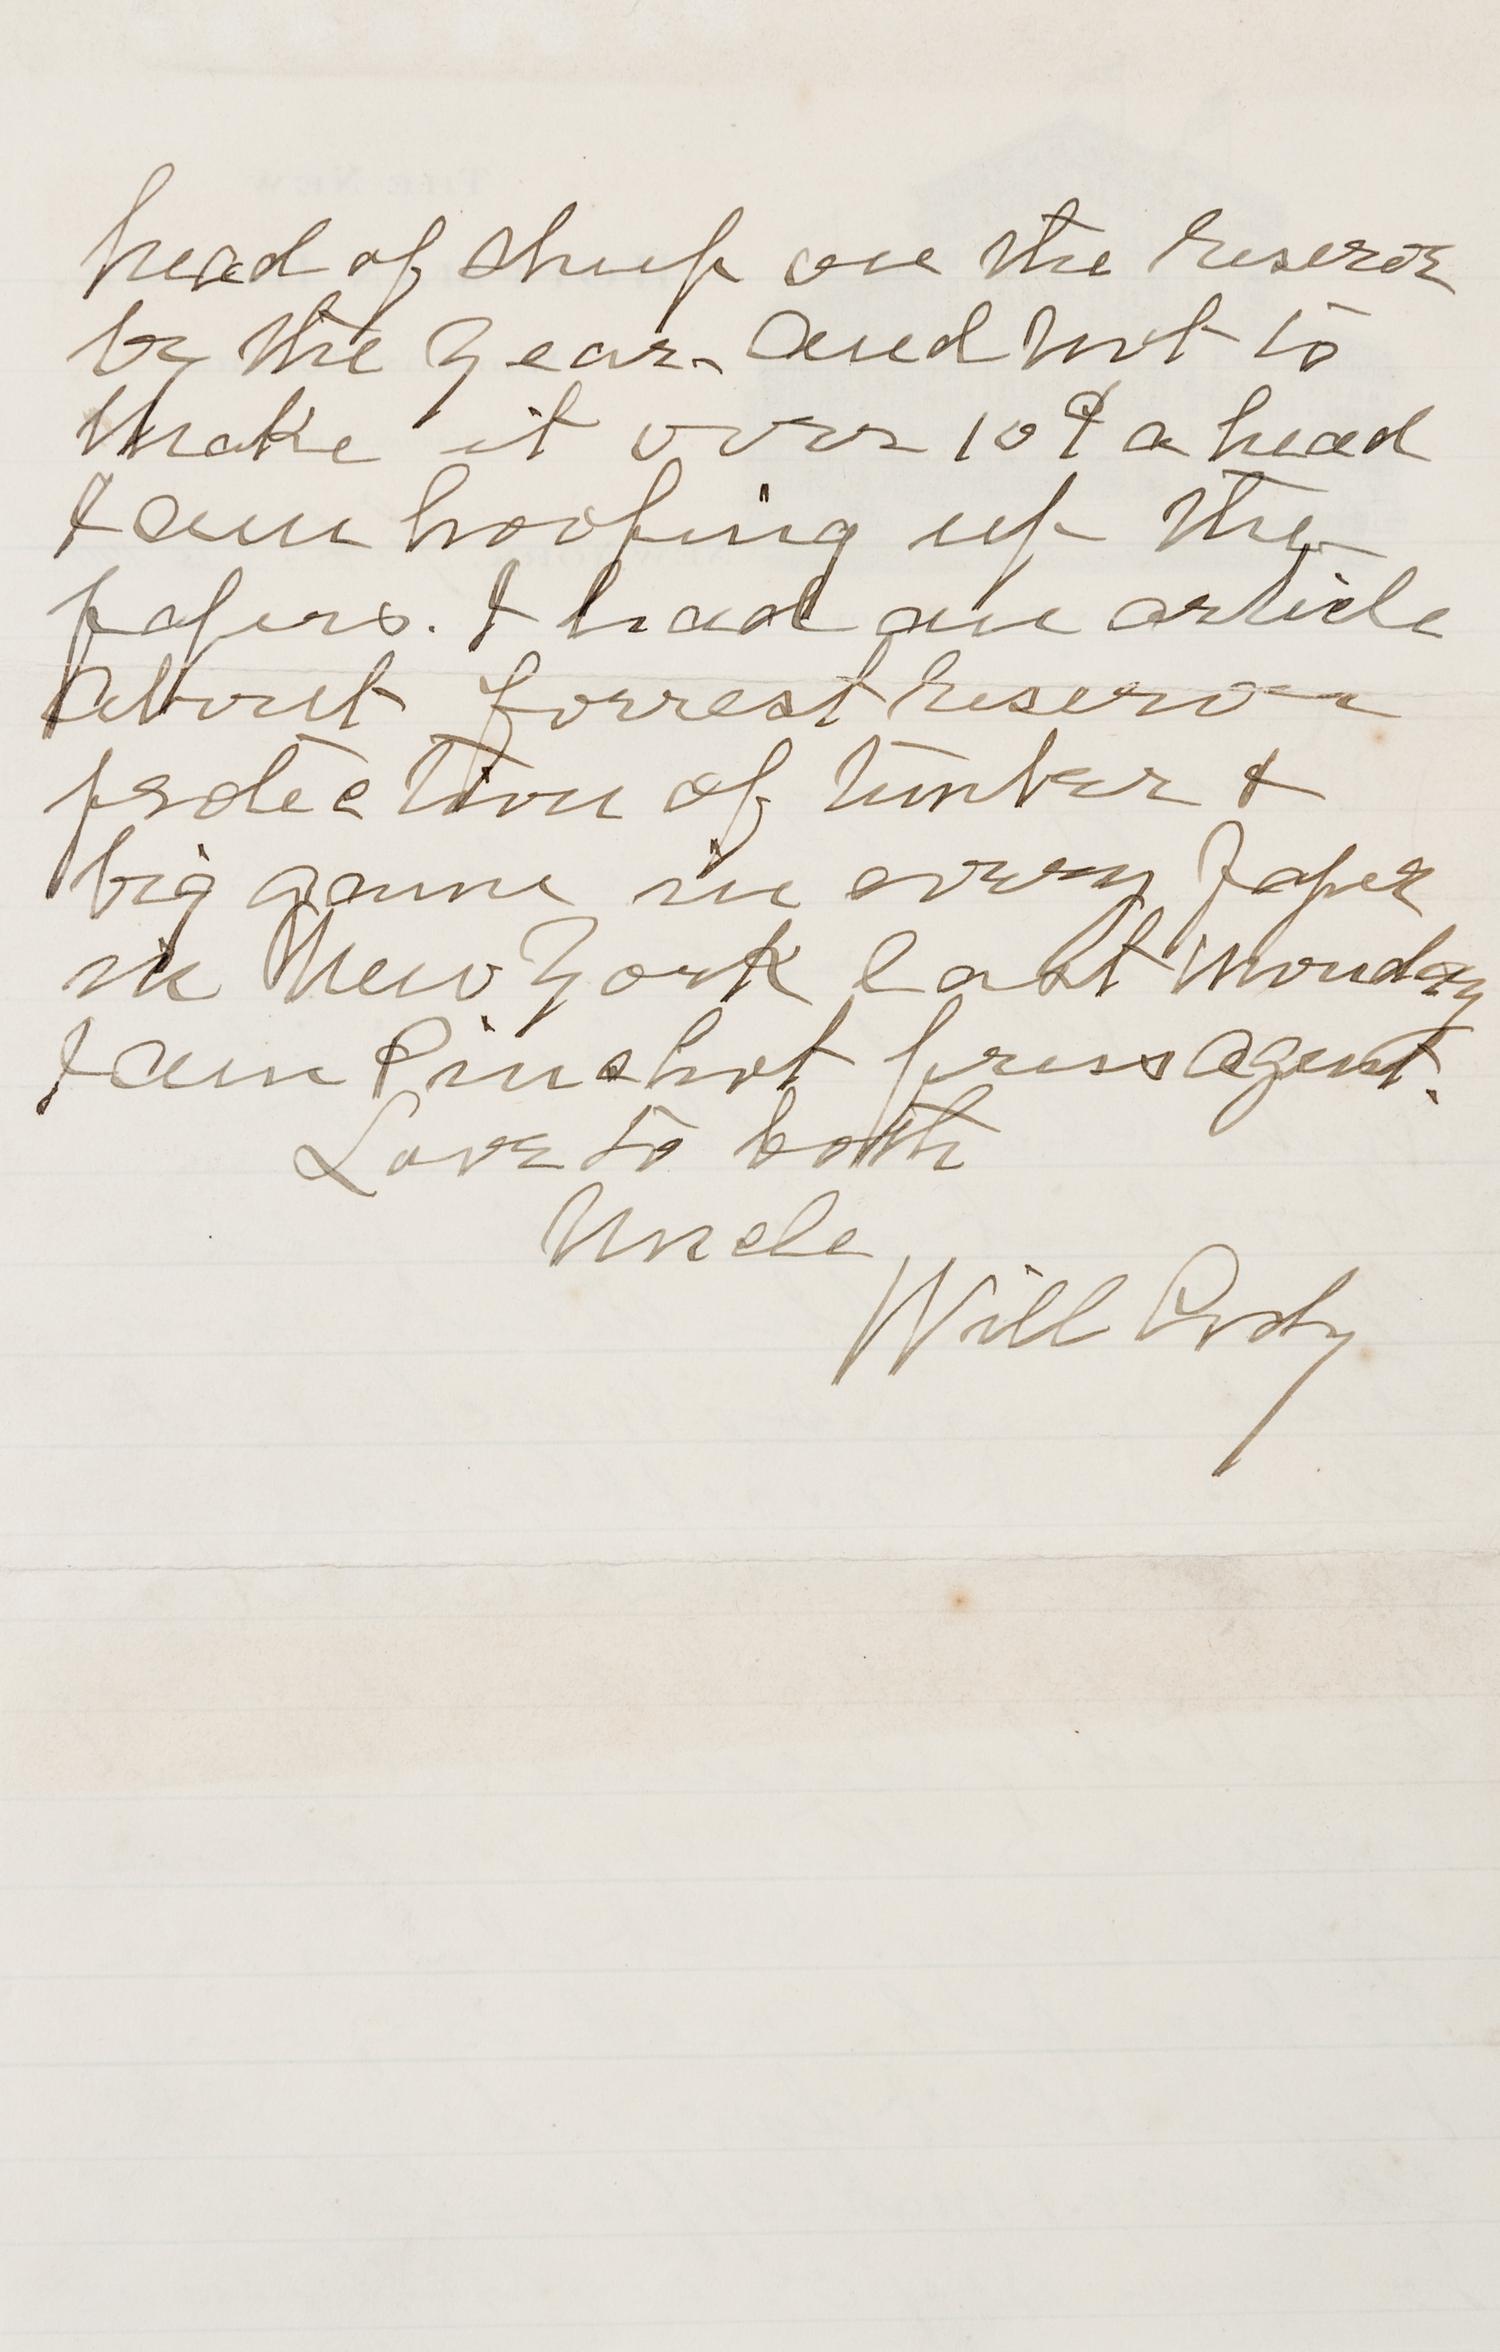 head of sheep on the reserve
by the year. and not to
make it over 10¢ a head
I am hoofing up the
papers. I had an article
about forrest reserve
protection of timber &
big game in every paper
in New York last Monday
I am Pinchot press agent.
Love to both
Uncle
Will Cody